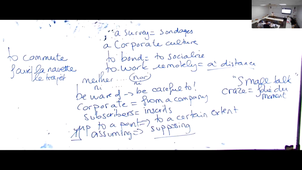 a survey = sondages
a Corporate culture
to commute
faire la navette
le trajet
to bond = to socialize
to work remotely = à distance
neither ... (nor)
ni ni
be ware of → be careful to!
"Small talk"
Corporate = from a company
craze = folie du moment
subscribers = inserds
up to a point → to a certain extent
assuming → supposing